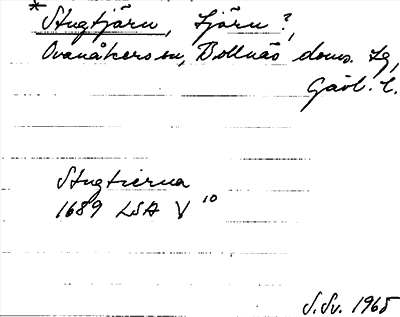 * Stugtjärn, tjärn?,
Ovanåkers sn, Bollnäs doms. tg,
Gävl. l.
Stugtierna
1689 LSA V 10
S.Sv. 1965